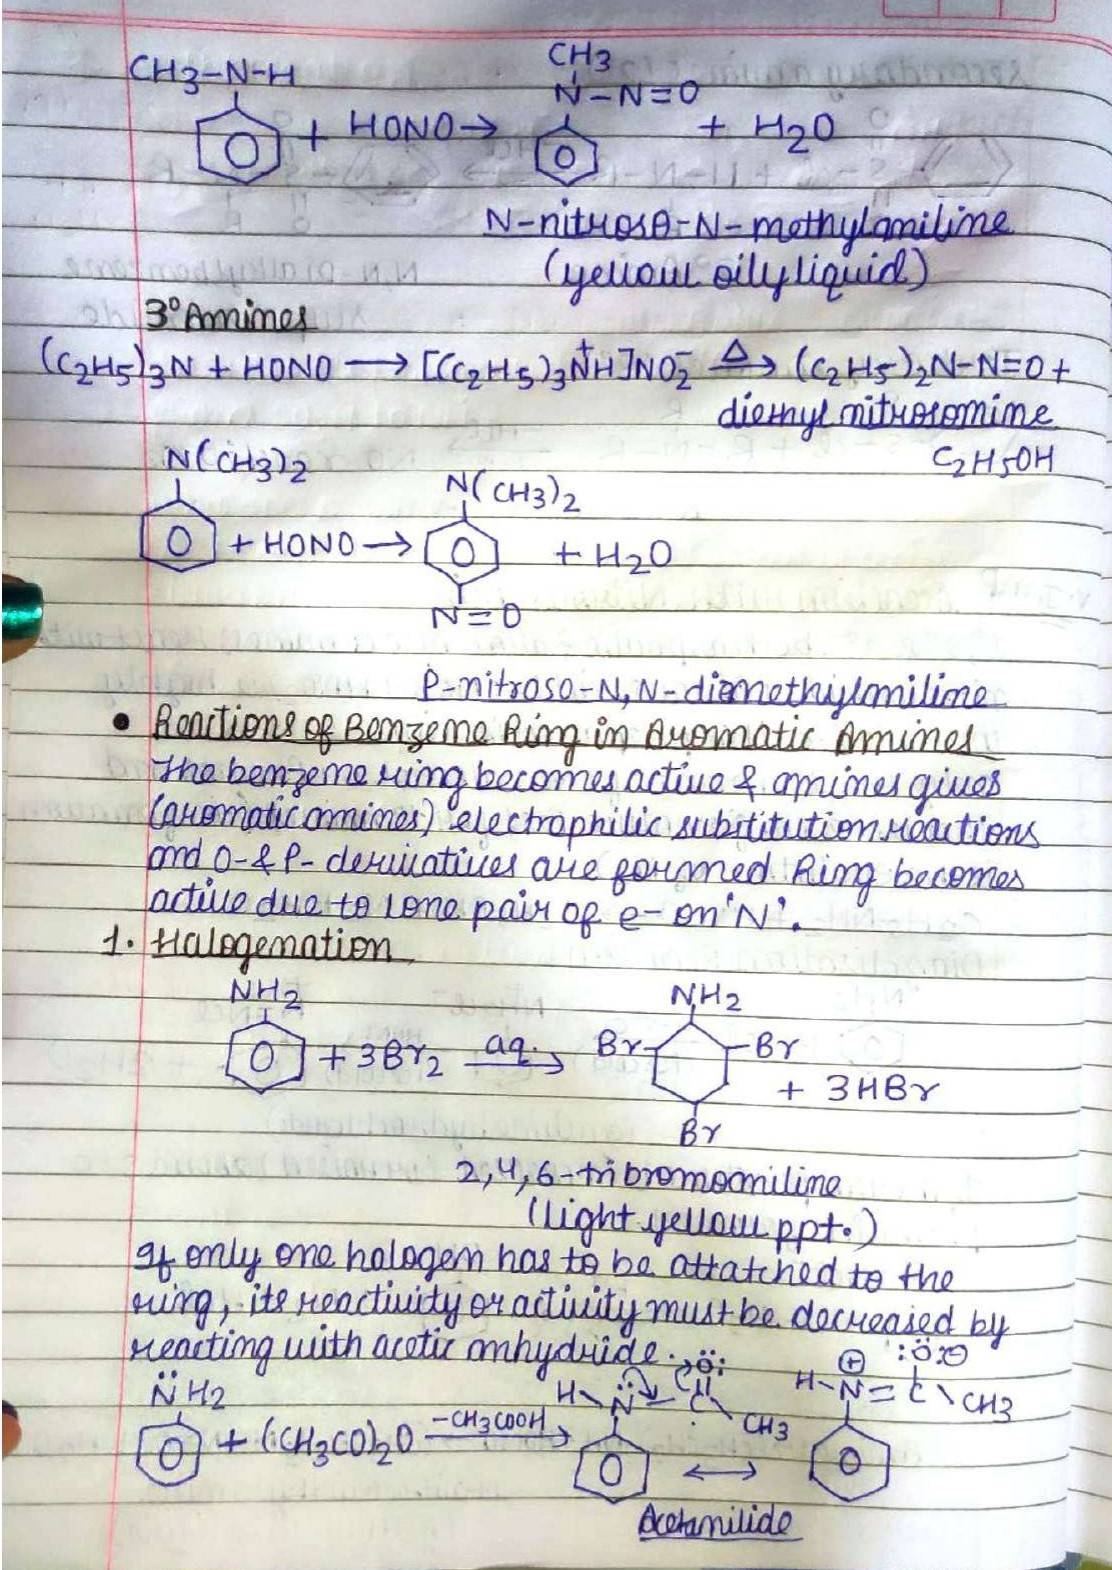 CH3-N-H
CH3
N-N=O
+ HONO → + H2O
N-nitroso-N-methylaniline
(yellow oily liquid)
3° Amines
(C2H5)3N + HONO → [(C2H5)3N+H]NO2- Δ→ (C2H5)2N-N=O +
diethyl nitrosomine
C2H5OH
N(CH3)2
N(CH3)2
+ HONO → + H2O
N=O
P-nitroso-N,N-dimethylaniline
• Reactions of Benzene Ring in Aromatic Amines
The benzene ring becomes active & amines gives
(aromatic amines) electrophilic substitution reactions
and O- & P- derivatives are formed. Ring becomes
active due to lone pair of e- on 'N'.
1. Halogenation
NH2 NH2
+ 3Br2 aq.→ Br Br
+ 3HBr
Br
2,4,6-tribromoaniline
(light yellow ppt.)
If only one halogen has to be attatched to the
ring, its reactivity or activity must be decreased by
reacting with acetic anhydride.
:Ö: :Ö:⊖
N̈H2 H-N̈-C-CH3 H-N⊕=C-CH3
+ (CH3CO)2O -CH3COOH→ ↔
Acetanilide